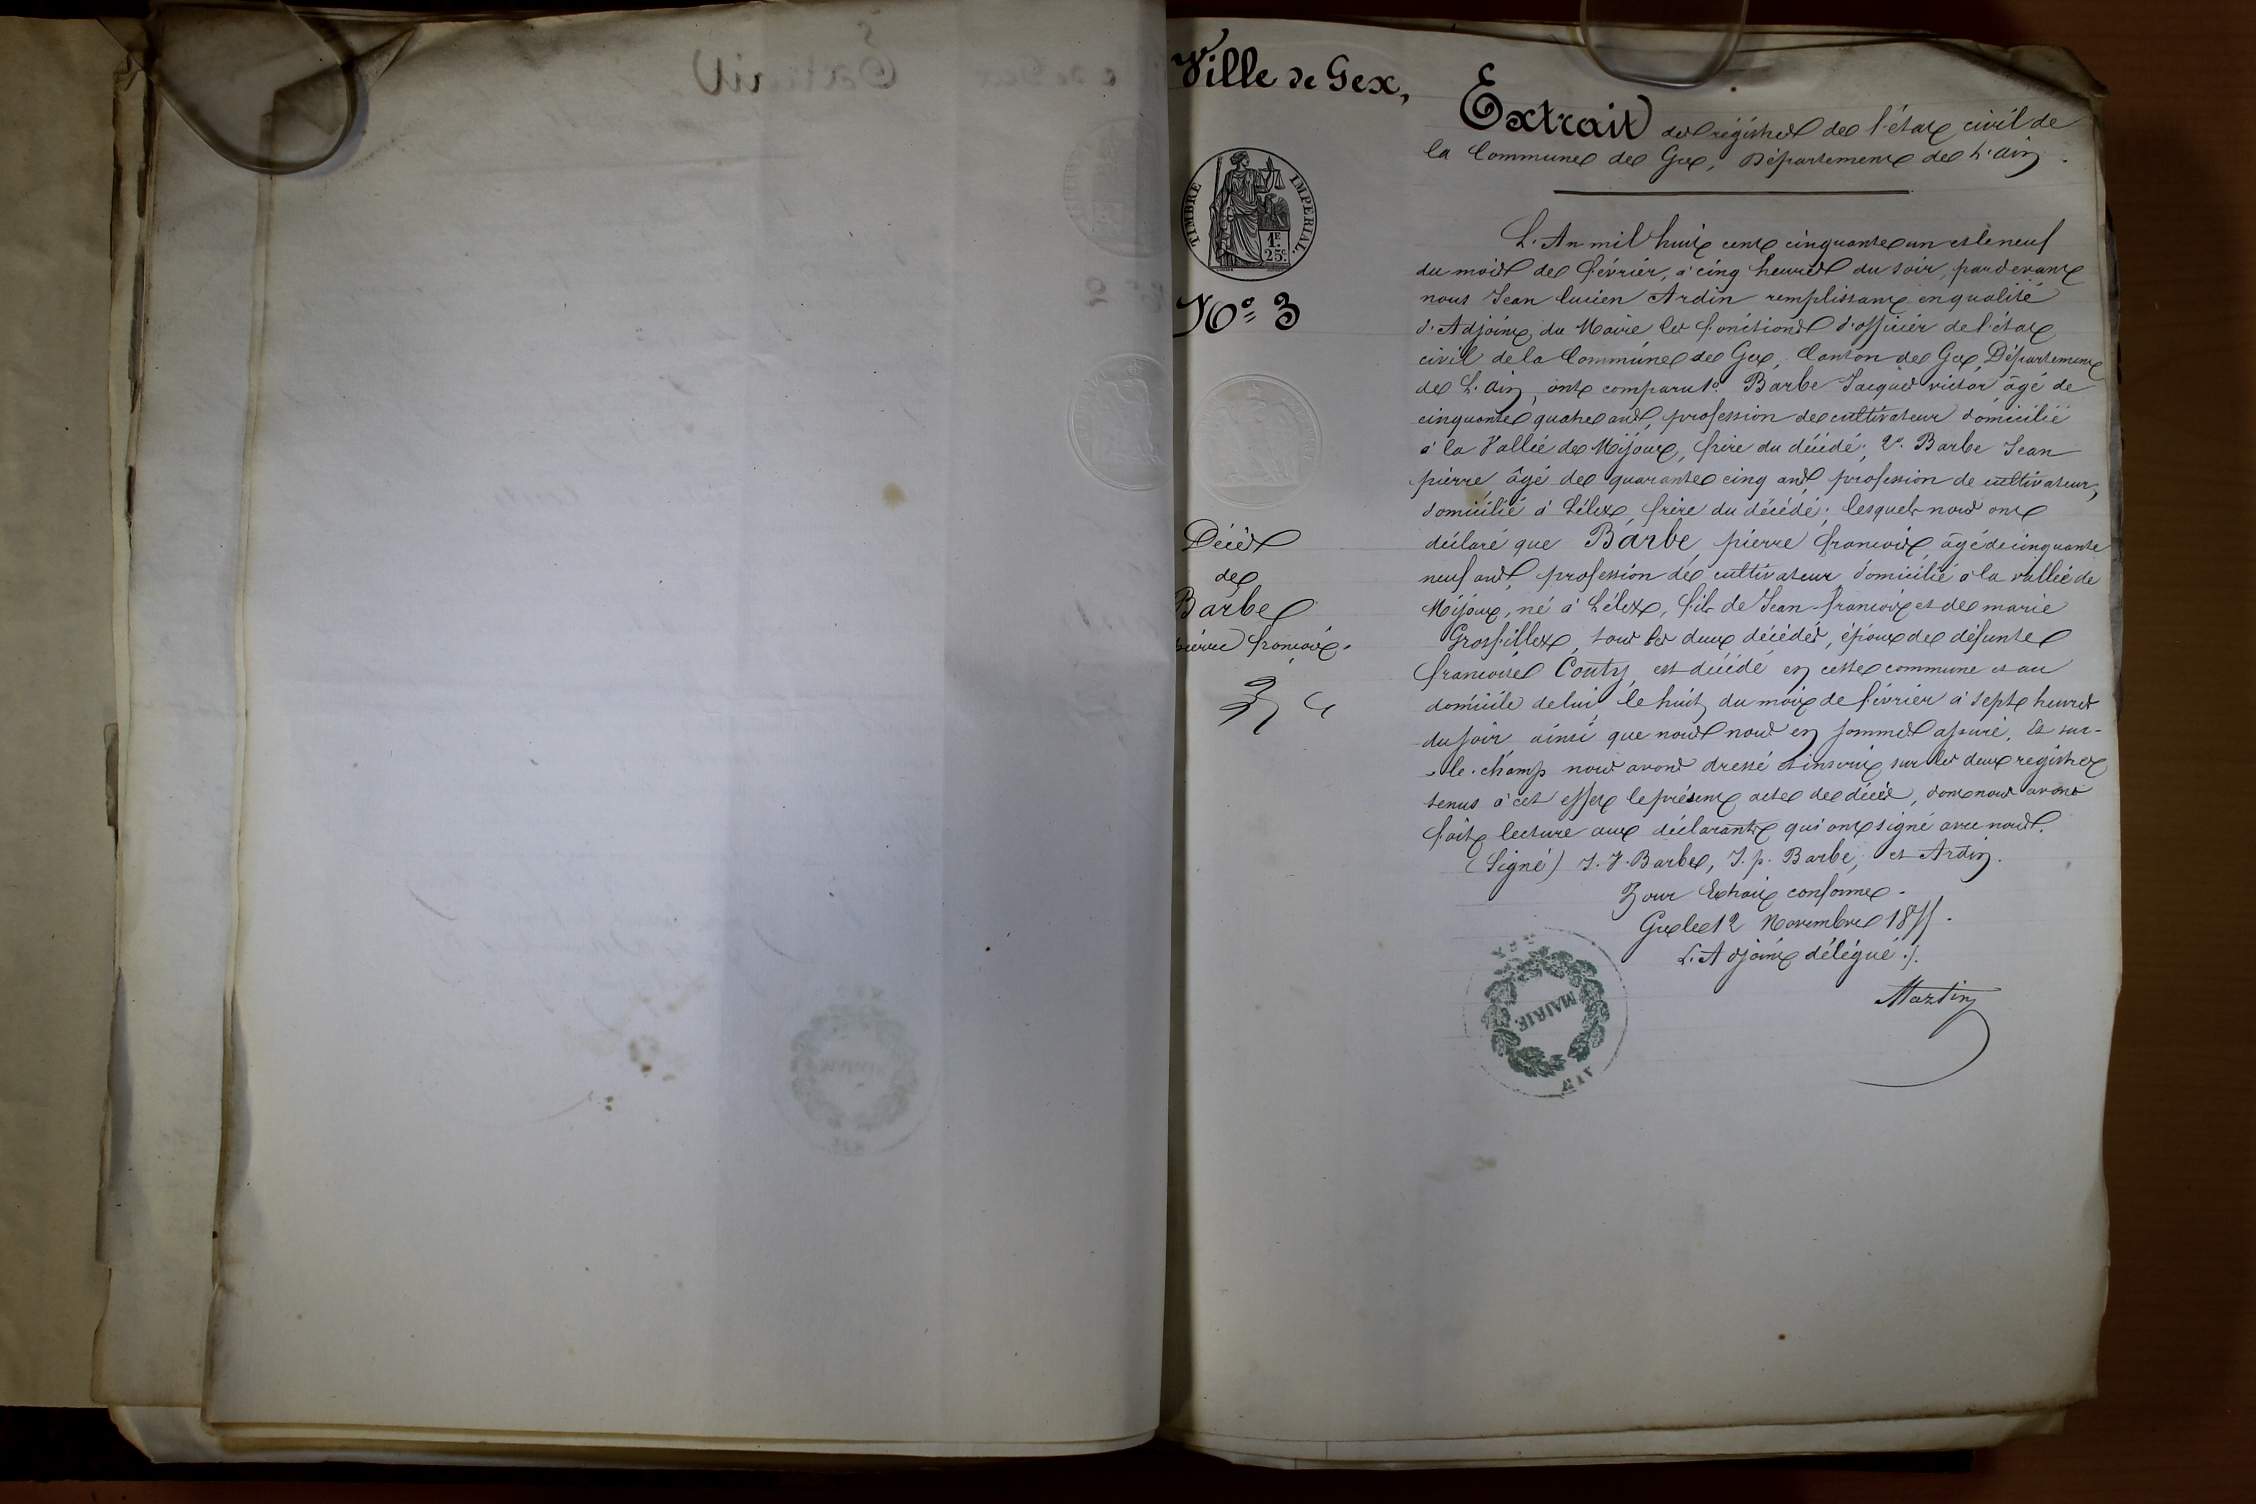 Ville de Gex,
Extrait des régistres de l'état civil de
la Commune de Gex, Département de L'ain.
TIMBRE IMPERIAL.
1F
25c
N° 3
L'An mil huit cent cinquante un et le neuf
du mois de février, à cinq heures du soir, pardevant
nous Jean Lucien Ardin remplissant en qualité
d'Adjoint du Maire les fonctions d'officier de l'état
civil de la Commune de Gex, Canton de Gex, Département
de L'ain, ont comparu 1° Barbe Jacques victor âgé de
cinquante quatre ans, profession de cultivateur domicilié
à la Vallée de Mijoux, frère du décédé; 2° Barbe Jean
pierre âgé de quarante cinq ans profession de cultivateur,
domicilié à Lélex, frère du décédé; lesquels nous ont
Décès
de
Barbe
pierre françois.
déclaré que Barbe, pierre françois, âgé de cinquante
neuf ans, profession de cultivateur, domicilié à la vallée de
Mijoux, né à Lélex, fils de Jean-françois et de marie
Grosfillex, tous les deux décédés, époux de défunte
françoise Couty, est décédé en cette commune et au
domicile de lui, le huit du mois de février à sept heures
du soir, ainsi que nous nous en sommes assuré. Et sur-
-le-champ nous avons dressé et inscrit sur les deux registres
tenus à cet effet le présent acte de décès, dont nous avons
fait lecture aux déclarants qui ont signé avec nous.
(Signé) J. V. Barbe, J. p. Barbe, et Ardin.
Pour Extrait conforme.
Gex le 12 Novembre 1855.
L'Adjoint délégué ./.
Martin
MAIRIE.
GEX
AIN